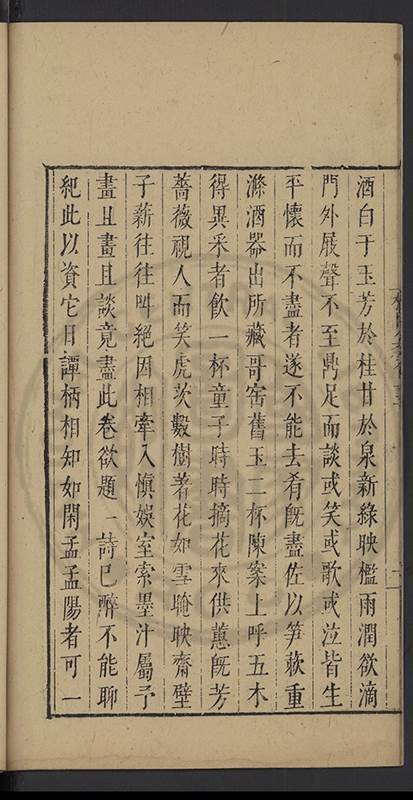 酒白于玉芳於桂甘於泉新綠映檻雨潤欲滴
門外屐聲不至鼎足而談或笑或歌或泣皆生
平懷而不盡者遂不能去肴旣盡佐以笋蔌重
滌酒器出所藏哥窑舊玉二杯陳案上呼五木
得異采者飲一杯童子時時摘花來供蕙旣芳
薔薇視人而笑虎茨數樹著花如雪晻映齋壁
子薪往往叫絕因相牽入愼娛室索墨汁屬予
畫且畫且談竟盡此卷欲題一詩已醉不能聊
紀此以資它日譚柄相知如閑孟孟陽者可一